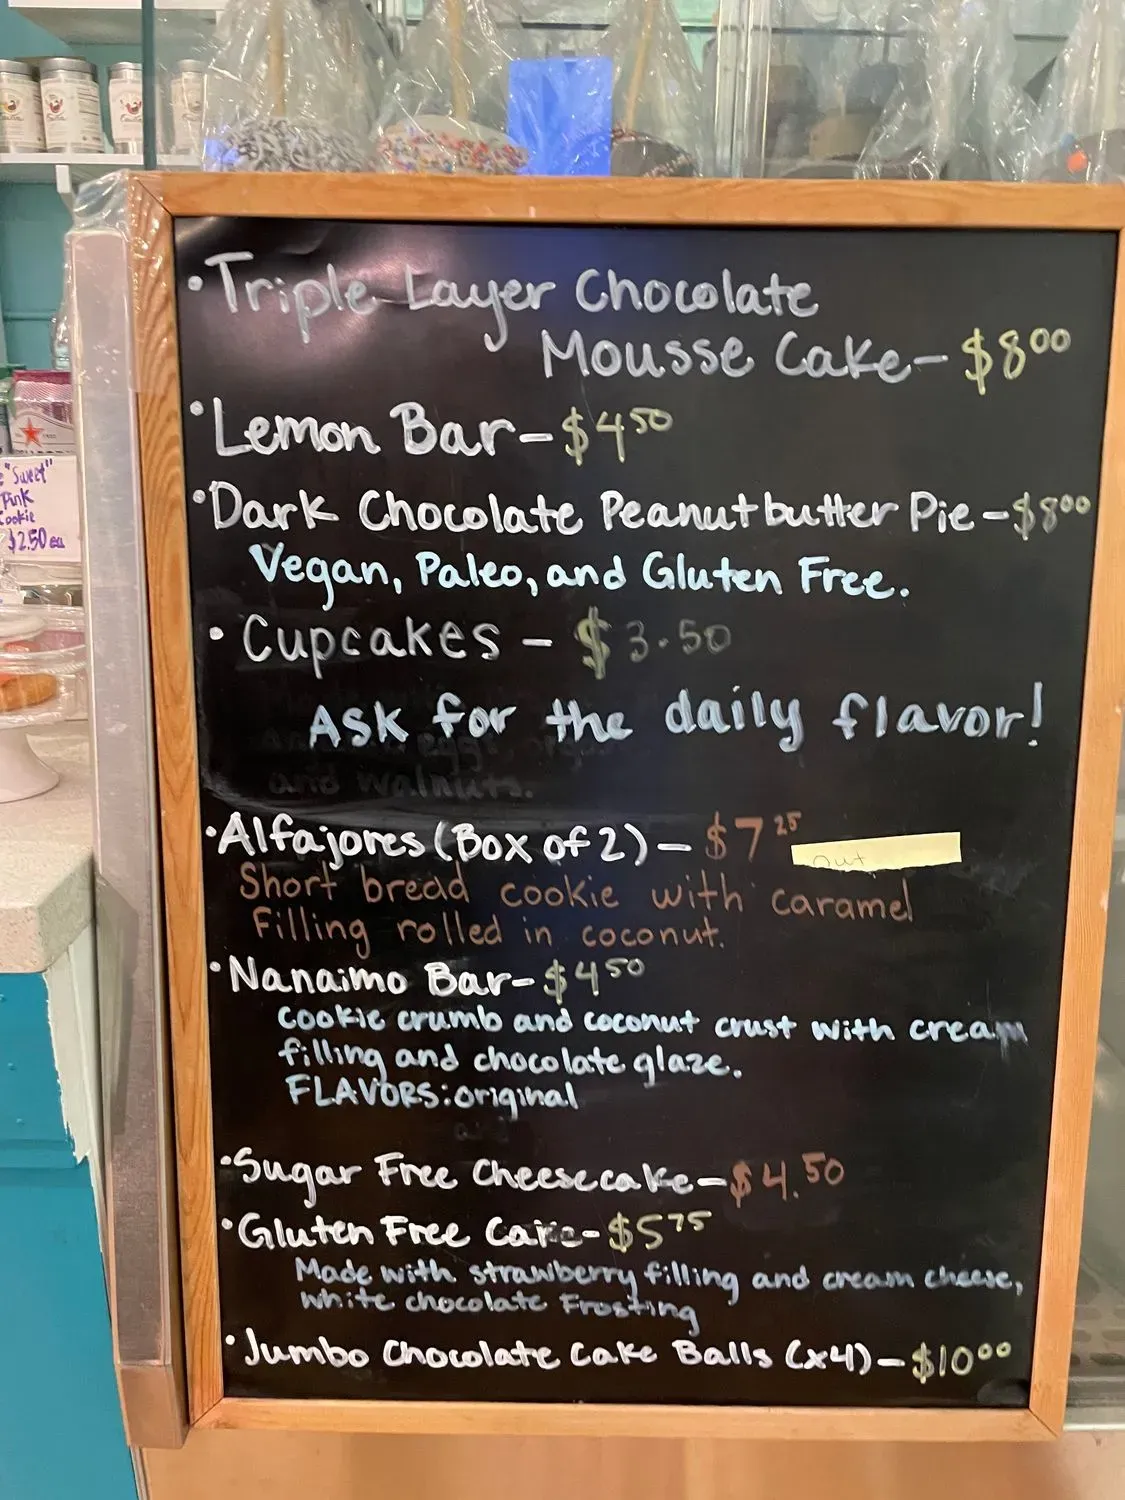 • Triple Layer Chocolate
Mousse Cake - $8 00
• Lemon Bar - $4 50
• Dark Chocolate Peanutbutter Pie - $8 00
Vegan, Paleo, and Gluten Free.
• Cupcakes - $3.50
Ask for the daily flavor!
and walnuts.
• Alfajores (Box of 2) - $7 25
out
Short bread cookie with caramel
Filling rolled in coconut.
• Nanaimo Bar - $4 50
cookie crumb and coconut crust with cream
filling and chocolate glaze.
FLAVORS: original
• Sugar Free Cheesecake - $4.50
• Gluten Free Cake - $5 75
Made with strawberry filling and cream cheese,
white chocolate Frosting
• Jumbo Chocolate Cake Balls (x4) - $10 00
"Sweet"
Pink
Cookie
$2.50 ea